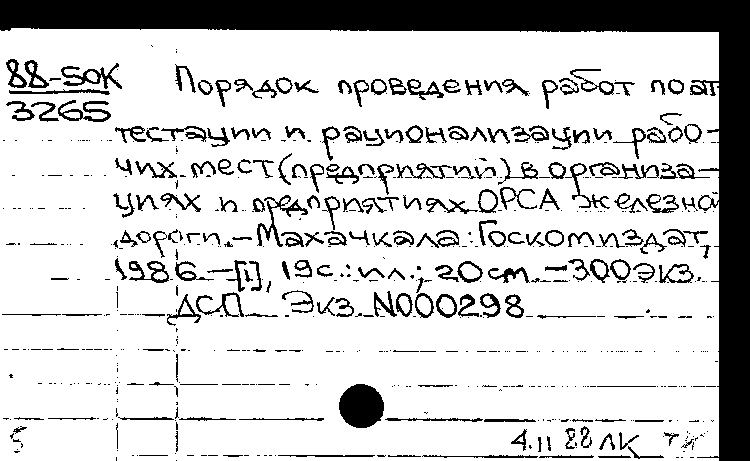 88-50К
3265
Порядок проведения работ по ат
тестации и рационализации рабо-
чих мест (предприятий) в организа-
циях и предприятиях ОРСА железной
дороги. - Махачкала: Госкомиздат,
1986. - [1], 19 с.: ил.; 20 см. - 300 экз.
ДСП Экз. N000298
5
4.11 88 ЛК ТК